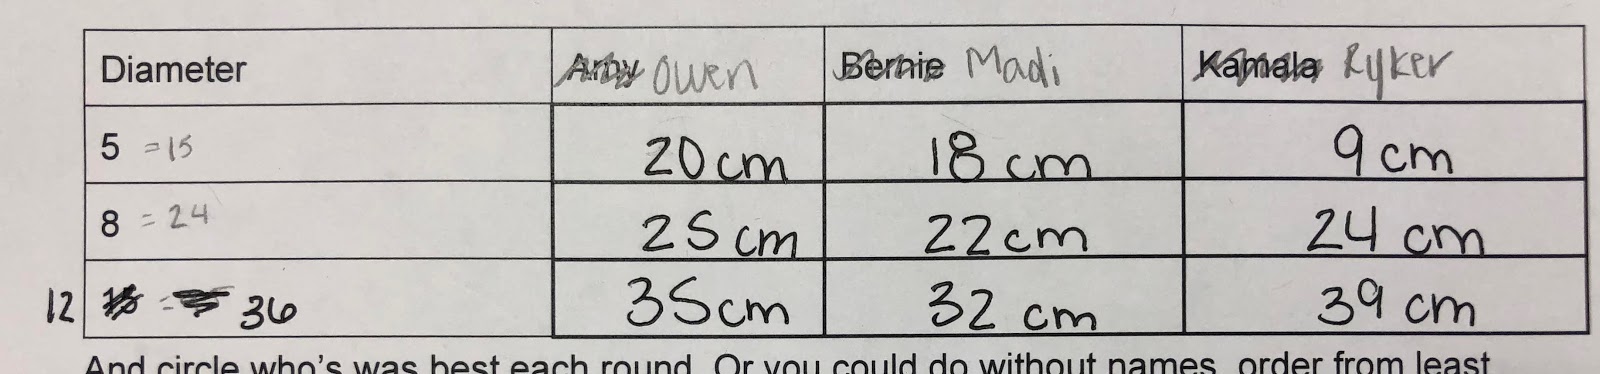 Diameter Arby Owen Bernie Madi Kamala Ryker
5 =15 20 cm 18 cm 9 cm
8 = 24 25 cm 22 cm 24 cm
12 = 36 35 cm 32 cm 39 cm
And circle who's was best each round. Or you could do without names, order from least